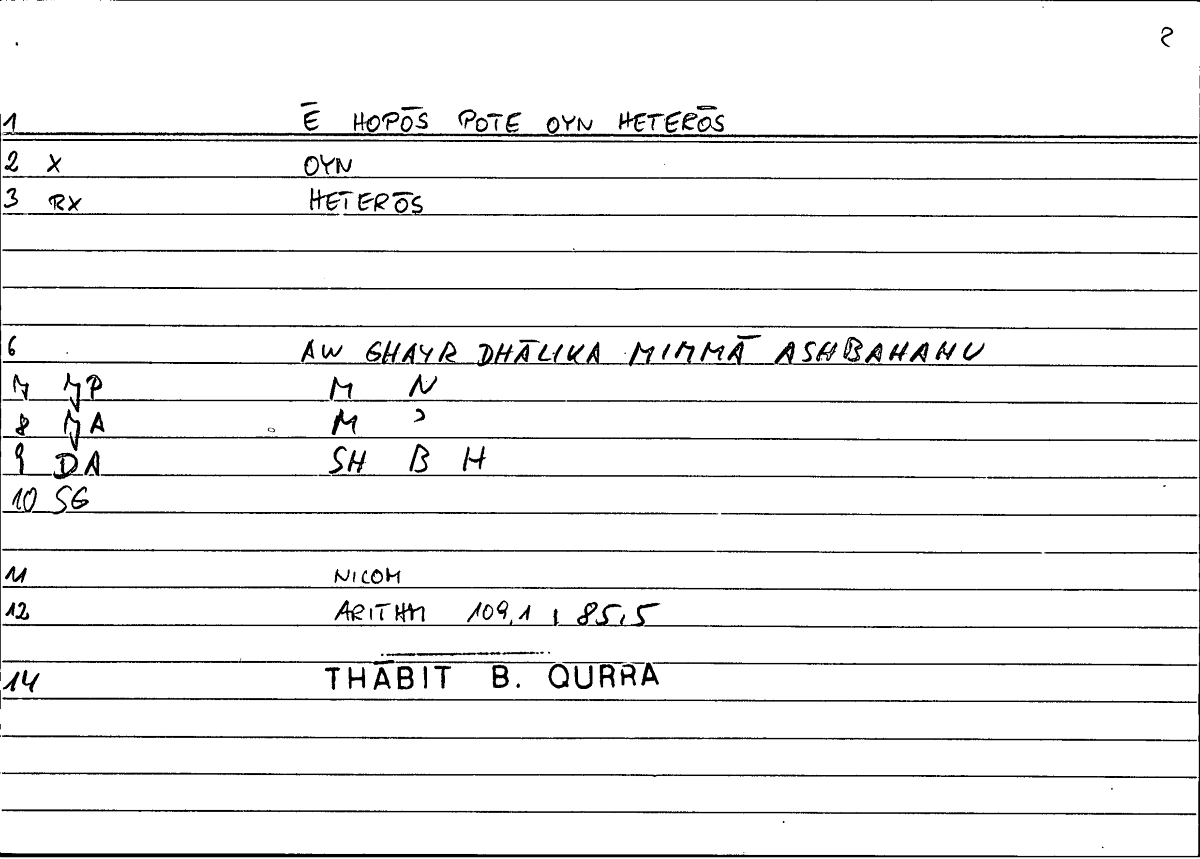 2
1 Ē HOPŌS POTE OYN HETERŌS
2 X OYN
3 RX HETERŌS
6 AW GHAYR DHĀLIKA MIMMĀ ASHBAHAHU
7 P M N
8 A M ʾ
9 DA SH B H
10 SG
11 NICOM
12 ARITHM 109,1 ; 85,5
14 THĀBIT B. QURRA